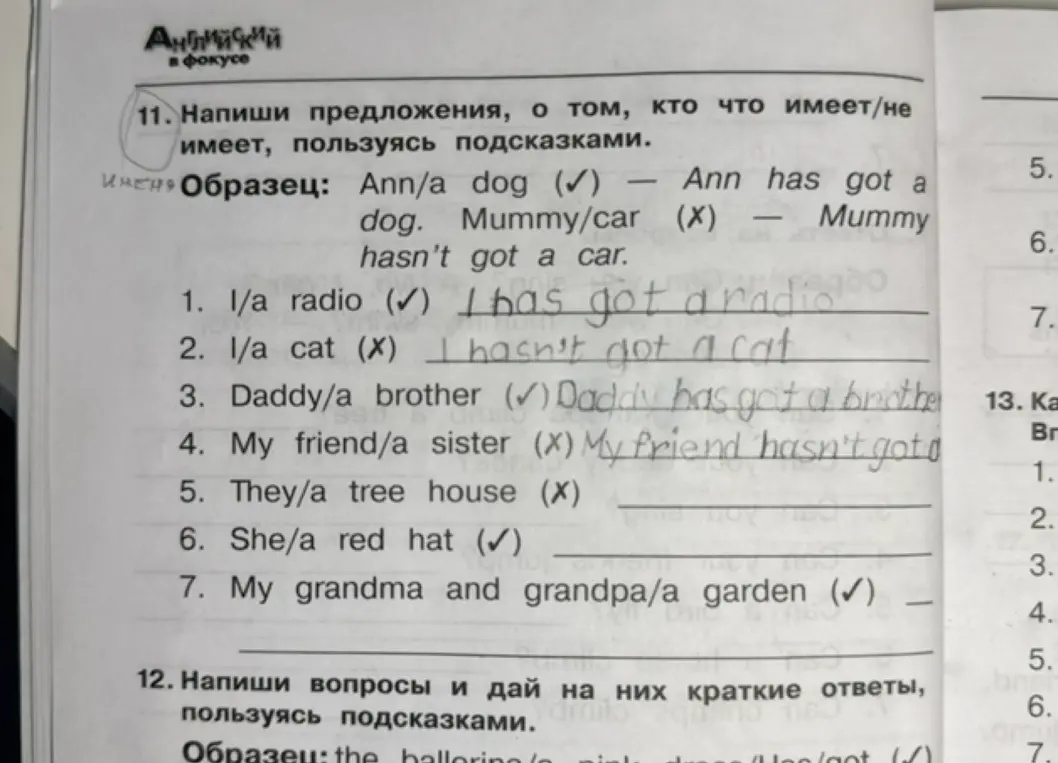 Английский
в фокусе
11. Напиши предложения, о том, кто что имеет/не
имеет, пользуясь подсказками.
Образец: Ann/a dog (✓) — Ann has got a
dog. Mummy/car (✗) — Mummy
hasn't got a car.
1. I/a radio (✓) I has got a radio
2. I/a cat (✗) I hasn't got a cat
3. Daddy/a brother (✓) Daddy has got a brother
4. My friend/a sister (✗) My friend hasn't got a
5. They/a tree house (✗)
6. She/a red hat (✓)
7. My grandma and grandpa/a garden (✓)
12. Напиши вопросы и дай на них краткие ответы,
пользуясь подсказками.
Образец: the ballerina/a pink dress/Has/got (✓)
5.
6.
7.
13. Ка
Вп
1.
2.
3.
4.
5.
6.
7.